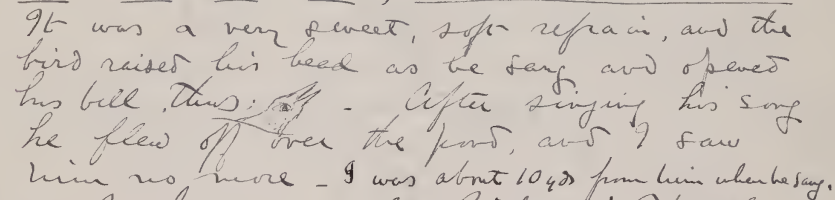 It was a very sweet, soft refrain, and the
bird raised his head as he sang and opened
his bill, thus: - After singing his song
he flew off over the pond, and I saw
him no more - I was about 10 yds from him when he sang.